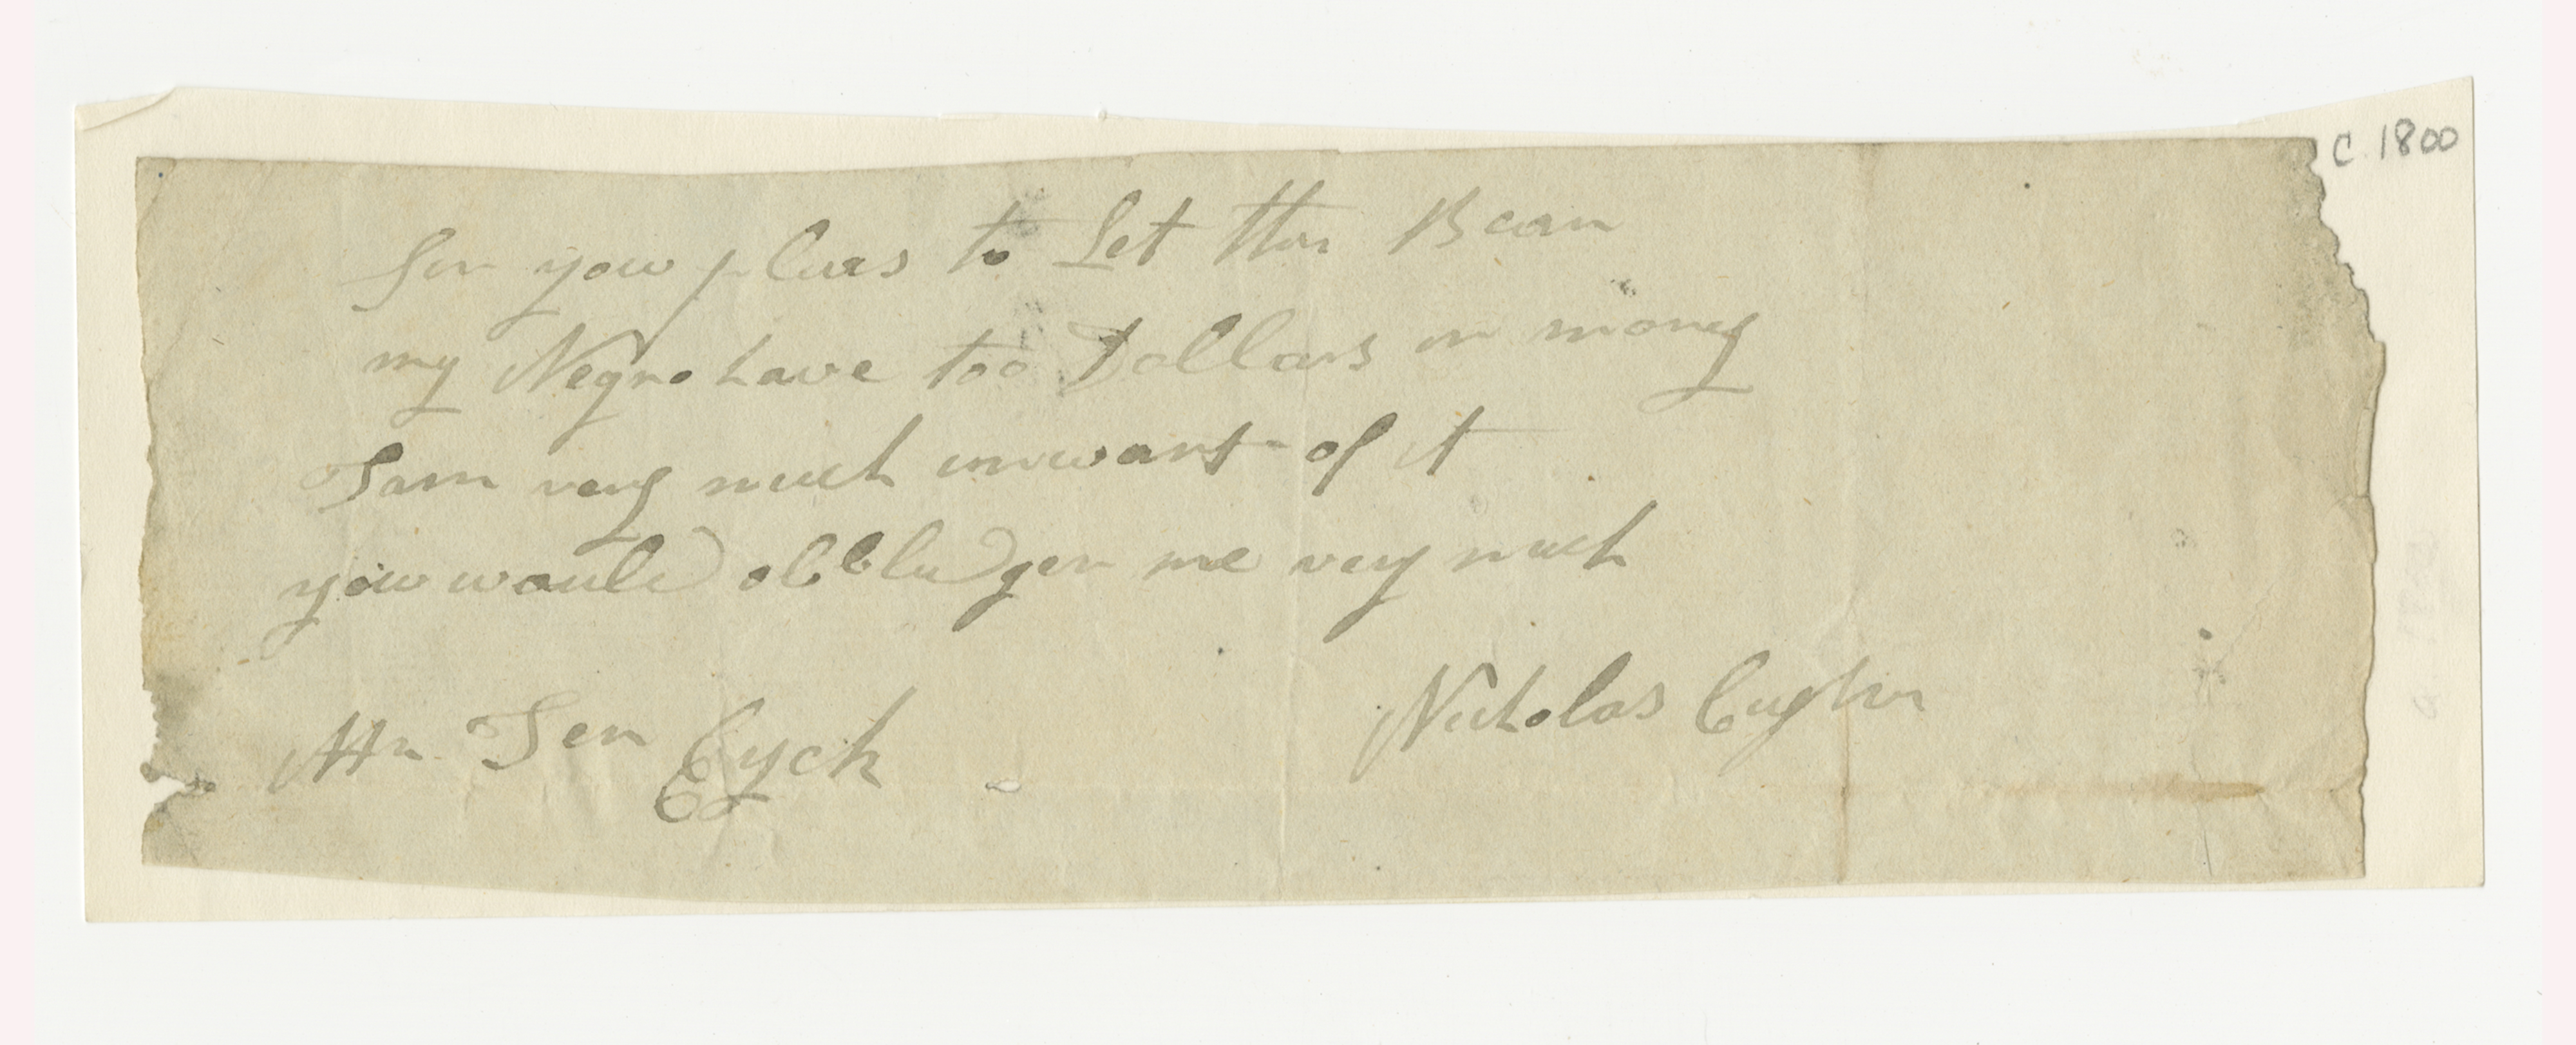 C. 1800
Sir you pleas to Let this Bearr
my Negro have too Dollars in money
I am very much in want of it
you would obbludger me very much
Nicholas
Mr Ten Eyck